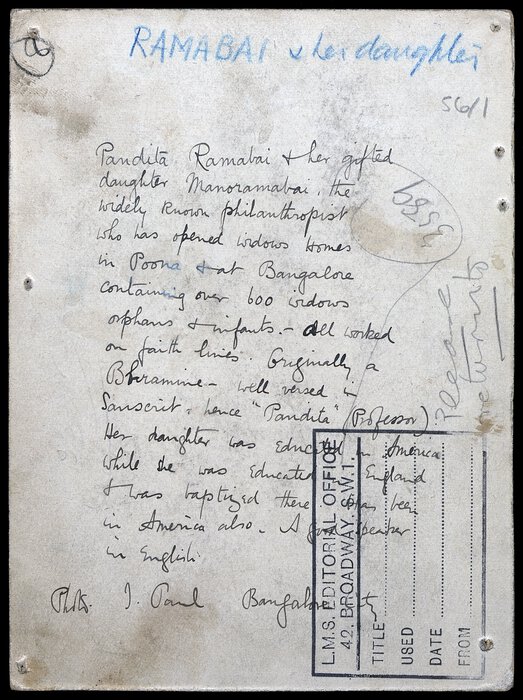 2
RAMABAI & her daughter
56/1
Pandita Ramabai & her gifted
daughter Manoramabai, the
widely known philanthropist
who has opened widows homes
in Poona & at Bangalore
containing over 600 widows
orphans & infants - all worked
on faith lines. Originally a
Bhramine - well versed in
Sanscrit, hence "Pandita" (Professor)
Her daughter was educated in America
while she was educated in England
& was baptized there & has been
in America also. A good speaker
in English
Photo. J. Paul Bangalore City
Please
return to
L.M.S. EDITORIAL OFFICE
42, BROADWAY, S.W.1.
TITLE
USED
DATE
FROM